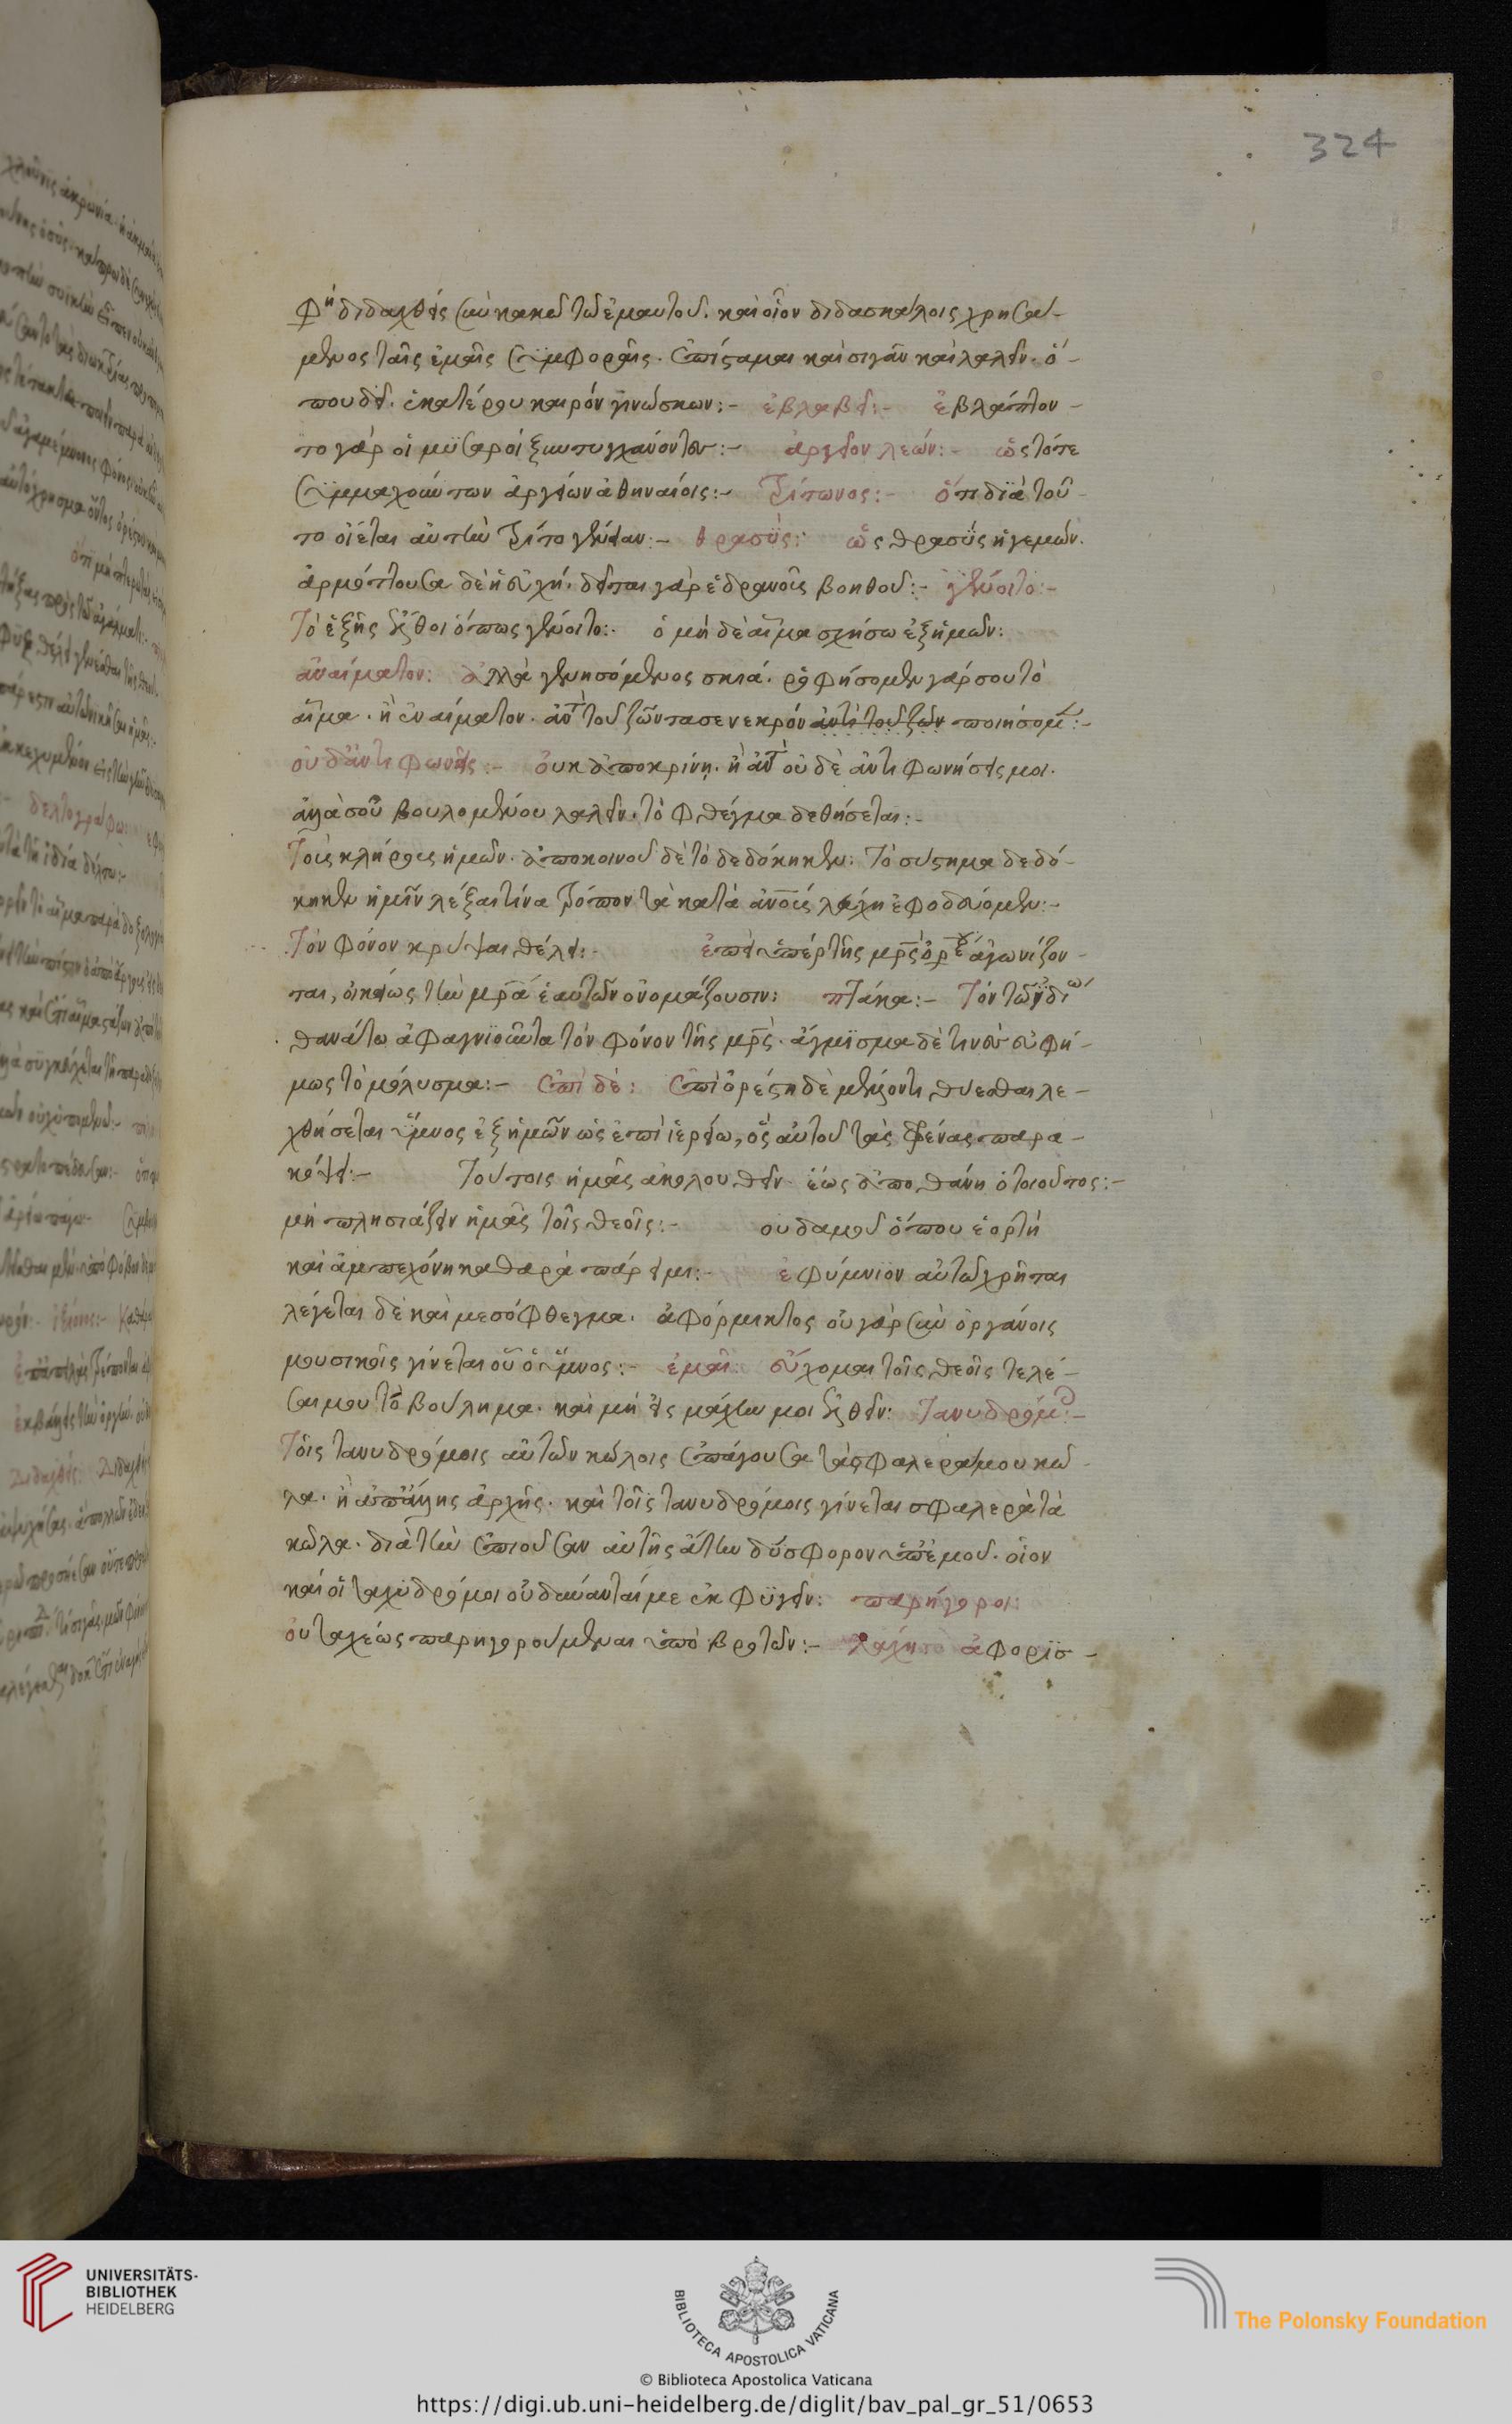 324
φη διδαχθεὶς σὺν κακῶ τῶ ἐμαυτοῦ. καὶ οἷον διδασκάλοις χρησά-
μενος ταῖς ἐμαῖς συμφοραῖς. ἐπίσταμαι καὶ σιγᾶν καὶ λαλεῖν. ὅ-
που δεῖ. ἑκατέρου καιρὸν γινώσκων:- ἐβλάβει:- ἐβλάπτον-
το γὰρ οἱ μυσαροὶ ξυντυγχάνοντες:- ἀργεῖον λεών:- ὡς τότε
συμμαχούντων ἀργείων ἀθηναίοις:- τρίτωνος:- ὅτι διὰ τοῦ-
το οἴεται αὐτὴν τριτογένειαν:- θρασὺς: ὡς θρασὺς ἡγεμών.
ἁρμόττουσα δὲ ἡ εὐχή. δεῖται γὰρ ἑδρανοῖς βοηθοῦ:- γένοιτο:-
Τὸ ἑξῆς ἔλθοι ὅπως γένοιτο:. ὁ μηδὲ αἷμα σχήσω ἐξ ἡμῶν:
ἀναίματον: ἀλλὰ γενησόμενος σκιά. ῥοφήσομεν γάρ σου τὸ
αἷμα. ἢ ἐναίματον. ἀντὶ τοῦ ζῶντα σε νεκρὸν ἀντὶ τοῦ ζῶν ποιήσομεν:-
οὐδ' ἀντιφωνεῖς:- οὐκ ἀποκρίνῃ. ἢ ἀντὶ οὐδὲ ἀντιφωνήσεις μοι.
ἀλλὰ σοῦ βουλομένου λαλεῖν. τὸ φθέγμα δεθήσεται:-
Τοῖς κλήροις ἡμῶν. ἀποκοινοῦ δὲ τὸ δεδόκηκεν: Τὸ σύστημα δεδό-
κηκεν ἡμῖν λέξαι τίνα τρόπον τὰ κατὰ ἀνοις λάχη ἐφοδεύομεν:-
Τὸν φόνον κρύψαι θέλει:- ἐπεὶ ὑπὲρ τῆς μρς ὀρέστου ἀγωνίζον-
ται, οἰκείως τὴν μρα ἑαυτῶν ὀνομάζουσιν: πτάκα:- Τὸν τῶ ἰδίω
θανάτω ἀφαγνιοῦντα τὸν φόνον τῆς μρς. ἅγνισμα δὲ τινὲς εὐφή-
μως τὸ μόλυσμα:- ἐπὶ δὲ: ἐπὶ ὀρέστη δὲ μέλλοντι θύεσθαι λε-
χθήσεται ὕμνος ἐξ ἡμῶν ὡς ἐπὶ ἱερείω, ὃς αὐτοῦ τὰς φρένας παρα-
κόψει:- Τούτοις ἡμᾶς ἀκολουθεῖν ἕως ἀποθάνη ὁ τοιοῦτος:-
μὴ πλησιάζειν ἡμᾶς τοῖς θεοῖς:- οὐδαμοῦ ὅπου ἑορτὴ
καὶ ἀμπεχόνη καθαρὰ πάρειμι:- ἐφύμνιον αὐτῶ χρῆται
λέγεται δὲ καὶ μεσόφθεγμα. ἀφόρμικτος οὐ γὰρ σὺν ὀργάνοις
μουσικοῖς γίνεται οὗ ὁ ὕμνος:- ἐμαῖς: εὔχομαι τοῖς θεοῖς τελέ-
σαι μου τὸ βούλημα. καὶ μὴ εἰς μάχην μοι ἐλθεῖν: Τανυδρόμοις:-
Τοῖς τανυδρόμοις αὐτῶν κώλοις ἐπάγουσα τὰ σφαλερά μου κῶ-
λα. ἢ ἀπ' ἄλλης ἀρχῆς. καὶ τοῖς τανυδρόμοις γίνεται σφαλερὰ τὰ
κῶλα. διὰ τὴν ἐπιοῦσαν αὐτῆς ἄτην δύσφορον ὑπ' ἐμοῦ. οἷον
καὶ οἱ ταχυδρόμοι οὐ δύνανταί με ἐκφυγεῖν: παρήγοροι:
οὐ ταχέως παρηγορούμεναι ὑπὸ βροτῶν:- λάχη τὸ ἀφορισ-
UNIVERSITÄTS-
BIBLIOTHEK
HEIDELBERG
BIBLIOTECA APOSTOLICA VATICANA
The Polonsky Foundation
© Biblioteca Apostolica Vaticana
https://digi.ub.uni-heidelberg.de/diglit/bav_pal_gr_51/0653